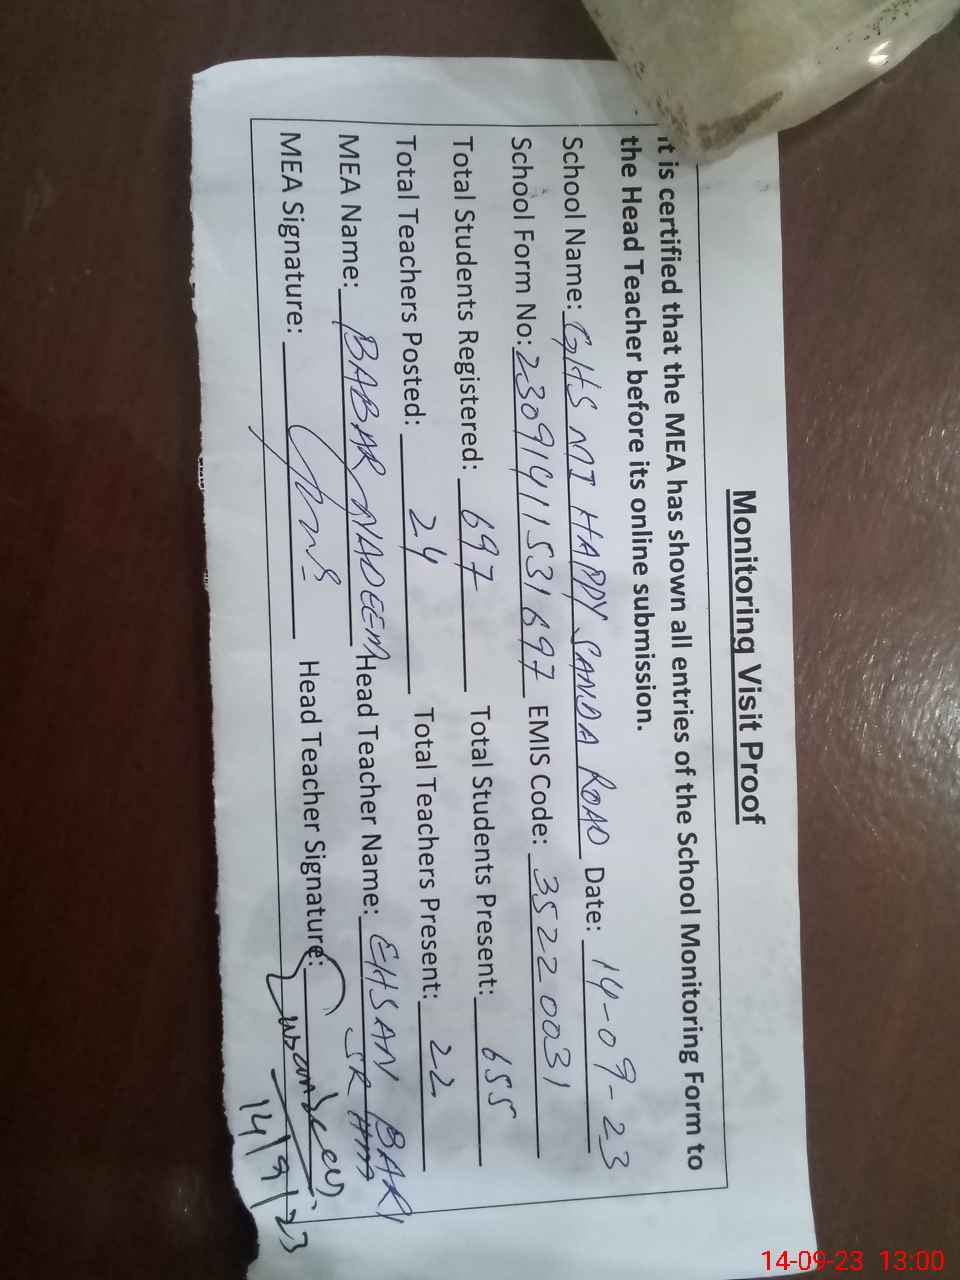 Monitoring Visit Proof
It is certified that the MEA has shown all entries of the School Monitoring Form to
the Head Teacher before its online submission.
School Name: GHS MI HAPPY SANDA ROAD Date: 14-09-23
School Form No: 2309141531697 EMIS Code: 35220031
Total Students Registered: 697 Total Students Present: 655
Total Teachers Posted: 24 Total Teachers Present: 22
MEA Name: BABAR NADEEM Head Teacher Name: EHSAN BARI
SR HM
MEA Signature: Head Teacher Signature:
14/9/23
14-09-23 13:00